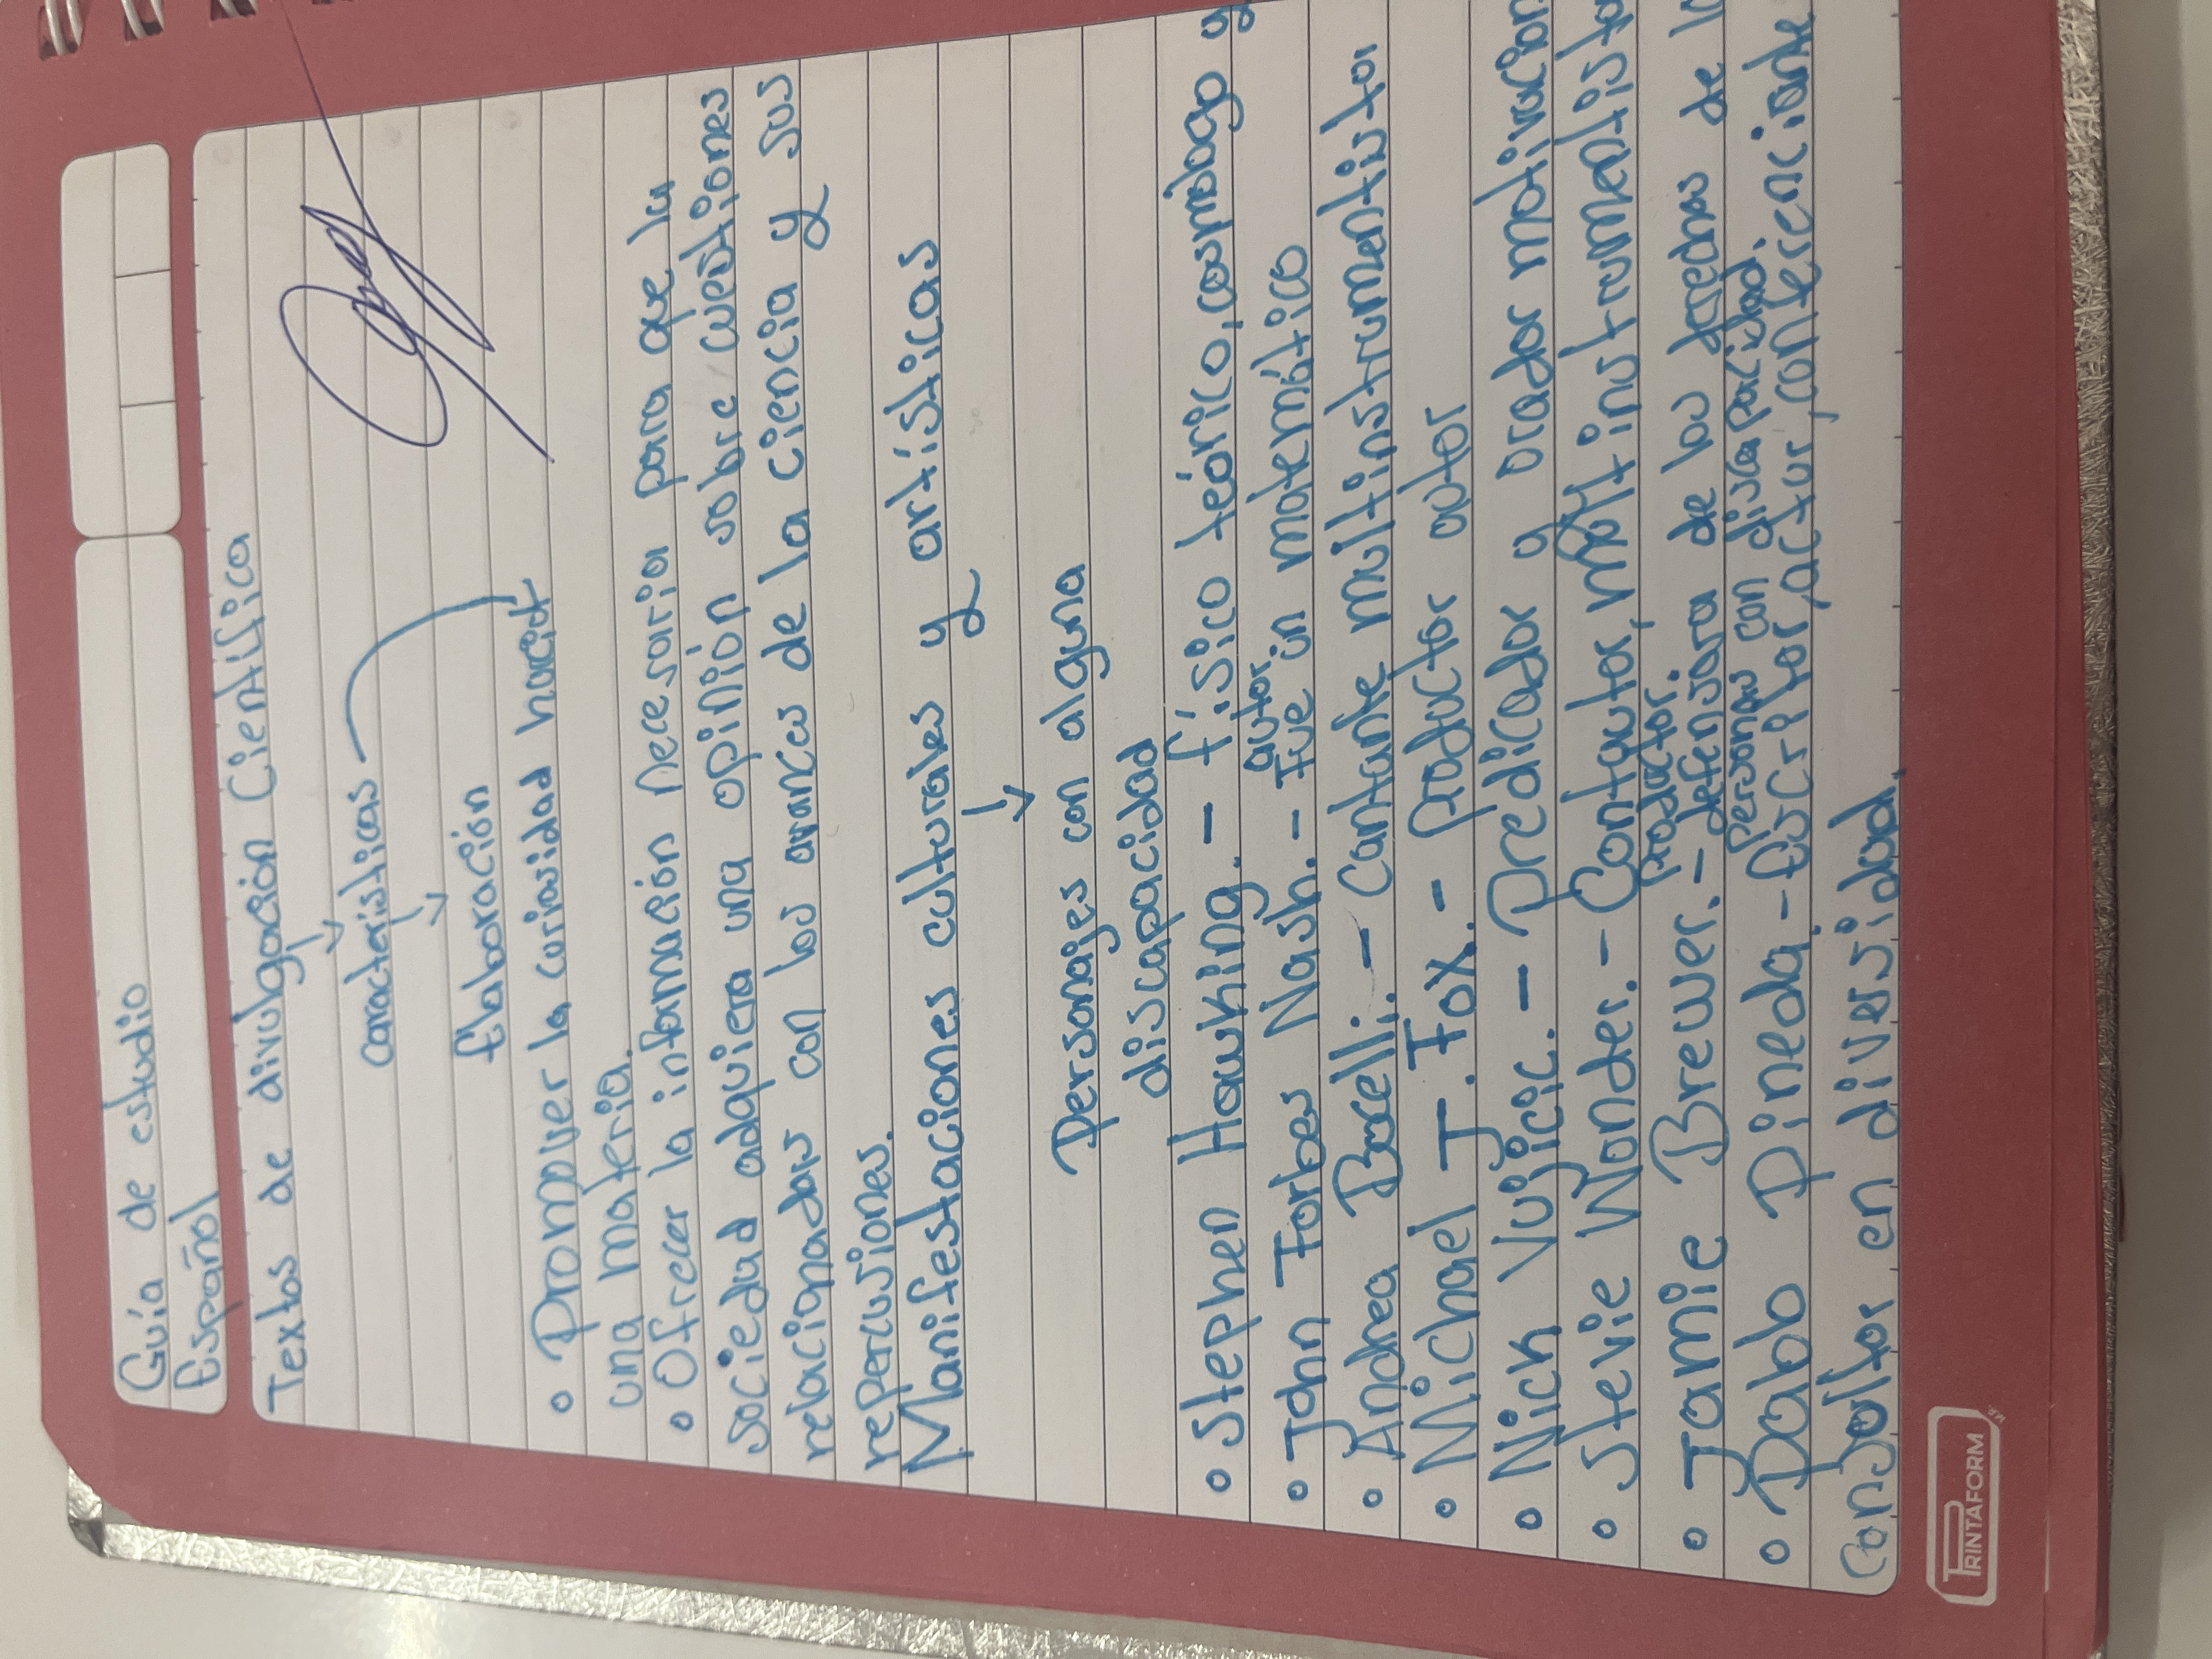 Guía de estudio
Español
Textos de divulgación Científica
características
Elaboración
• Promover la curiosidad hacia
una materia.
• Ofrecer la información necesaria para que la
sociedad adquiera una opinión sobre cuestiones
relacionadas con los avances de la ciencia y sus
repercusiones.
Manifestaciones culturales y artísticas
Personajes con alguna
discapacidad
• Stephen Hawking.- físico teórico, cosmólogo y
autor.
• John Forbes Nash.- Fue un matemático
• Andrea Bocelli.- Cantante multinstrumentista
• Michael J. Fox.- Productor autor
• Nick Vujicic.- Predicador y orador motivacion
• Stevie Wonder.- Cantautor, multinstrumentista
Productor.
• Jamie Brewer.- defensora de los derechos de l
personas con discapacidad.
• Pablo Pineda.- Escritor, actor, conferenciante
Consultor en diversidad.
PRINTAFORM
M.R.